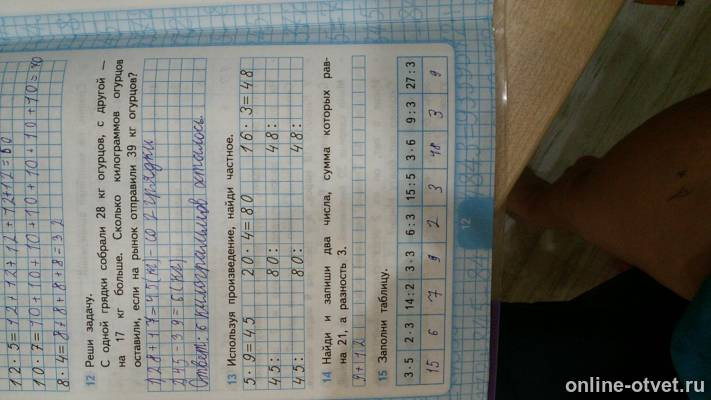 12 · 5 = 12 + 12 + 12 + 12 + 12 = 60
10 · 7 = 10 + 10 + 10 + 10 + 10 + 10 + 10 = 70
8 · 4 = 8 + 8 + 8 + 8 = 32
12 Реши задачу.
С одной грядки собрали 28 кг огурцов, с другой —
на 17 кг больше. Сколько килограммов огурцов
оставили, если на рынок отправили 39 кг огурцов?
1 28 + 17 = 45 (кг) – со 2 грядки
2 45 – 39 = 6 (кг)
Ответ: 6 килограммов осталось.
13 Используя произведение, найди частное.
5 · 9 = 45 20 · 4 = 80 16 · 3 = 48
45 : 80 : 48 :
45 : 80 : 48 :
14 Найди и запиши два числа, сумма которых рав-
на 21, а разность 3.
9 + 12
15 Заполни таблицу.
3 · 5 2 · 3 14 : 2 3 · 3 6 : 3 15 : 5 3 · 6 9 : 3 27 : 3
15 6 7 9 2 3 18 3 9
12
online-otvet.ru